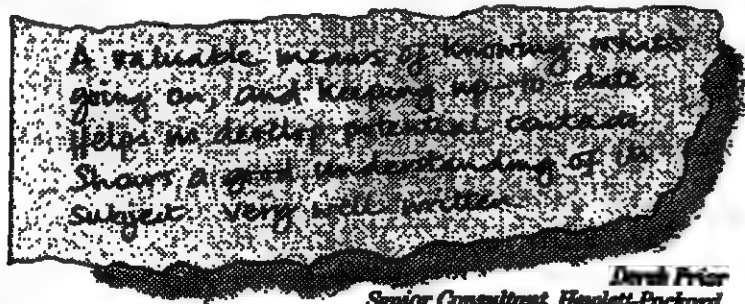 A valuable means of knowing what's
going on, and keeping up-to-date
Helps me develop potential contacts
Shows a good understanding of its
subject. Very well written
Derek Prior
Senior Consultant, Hewlett-Packard